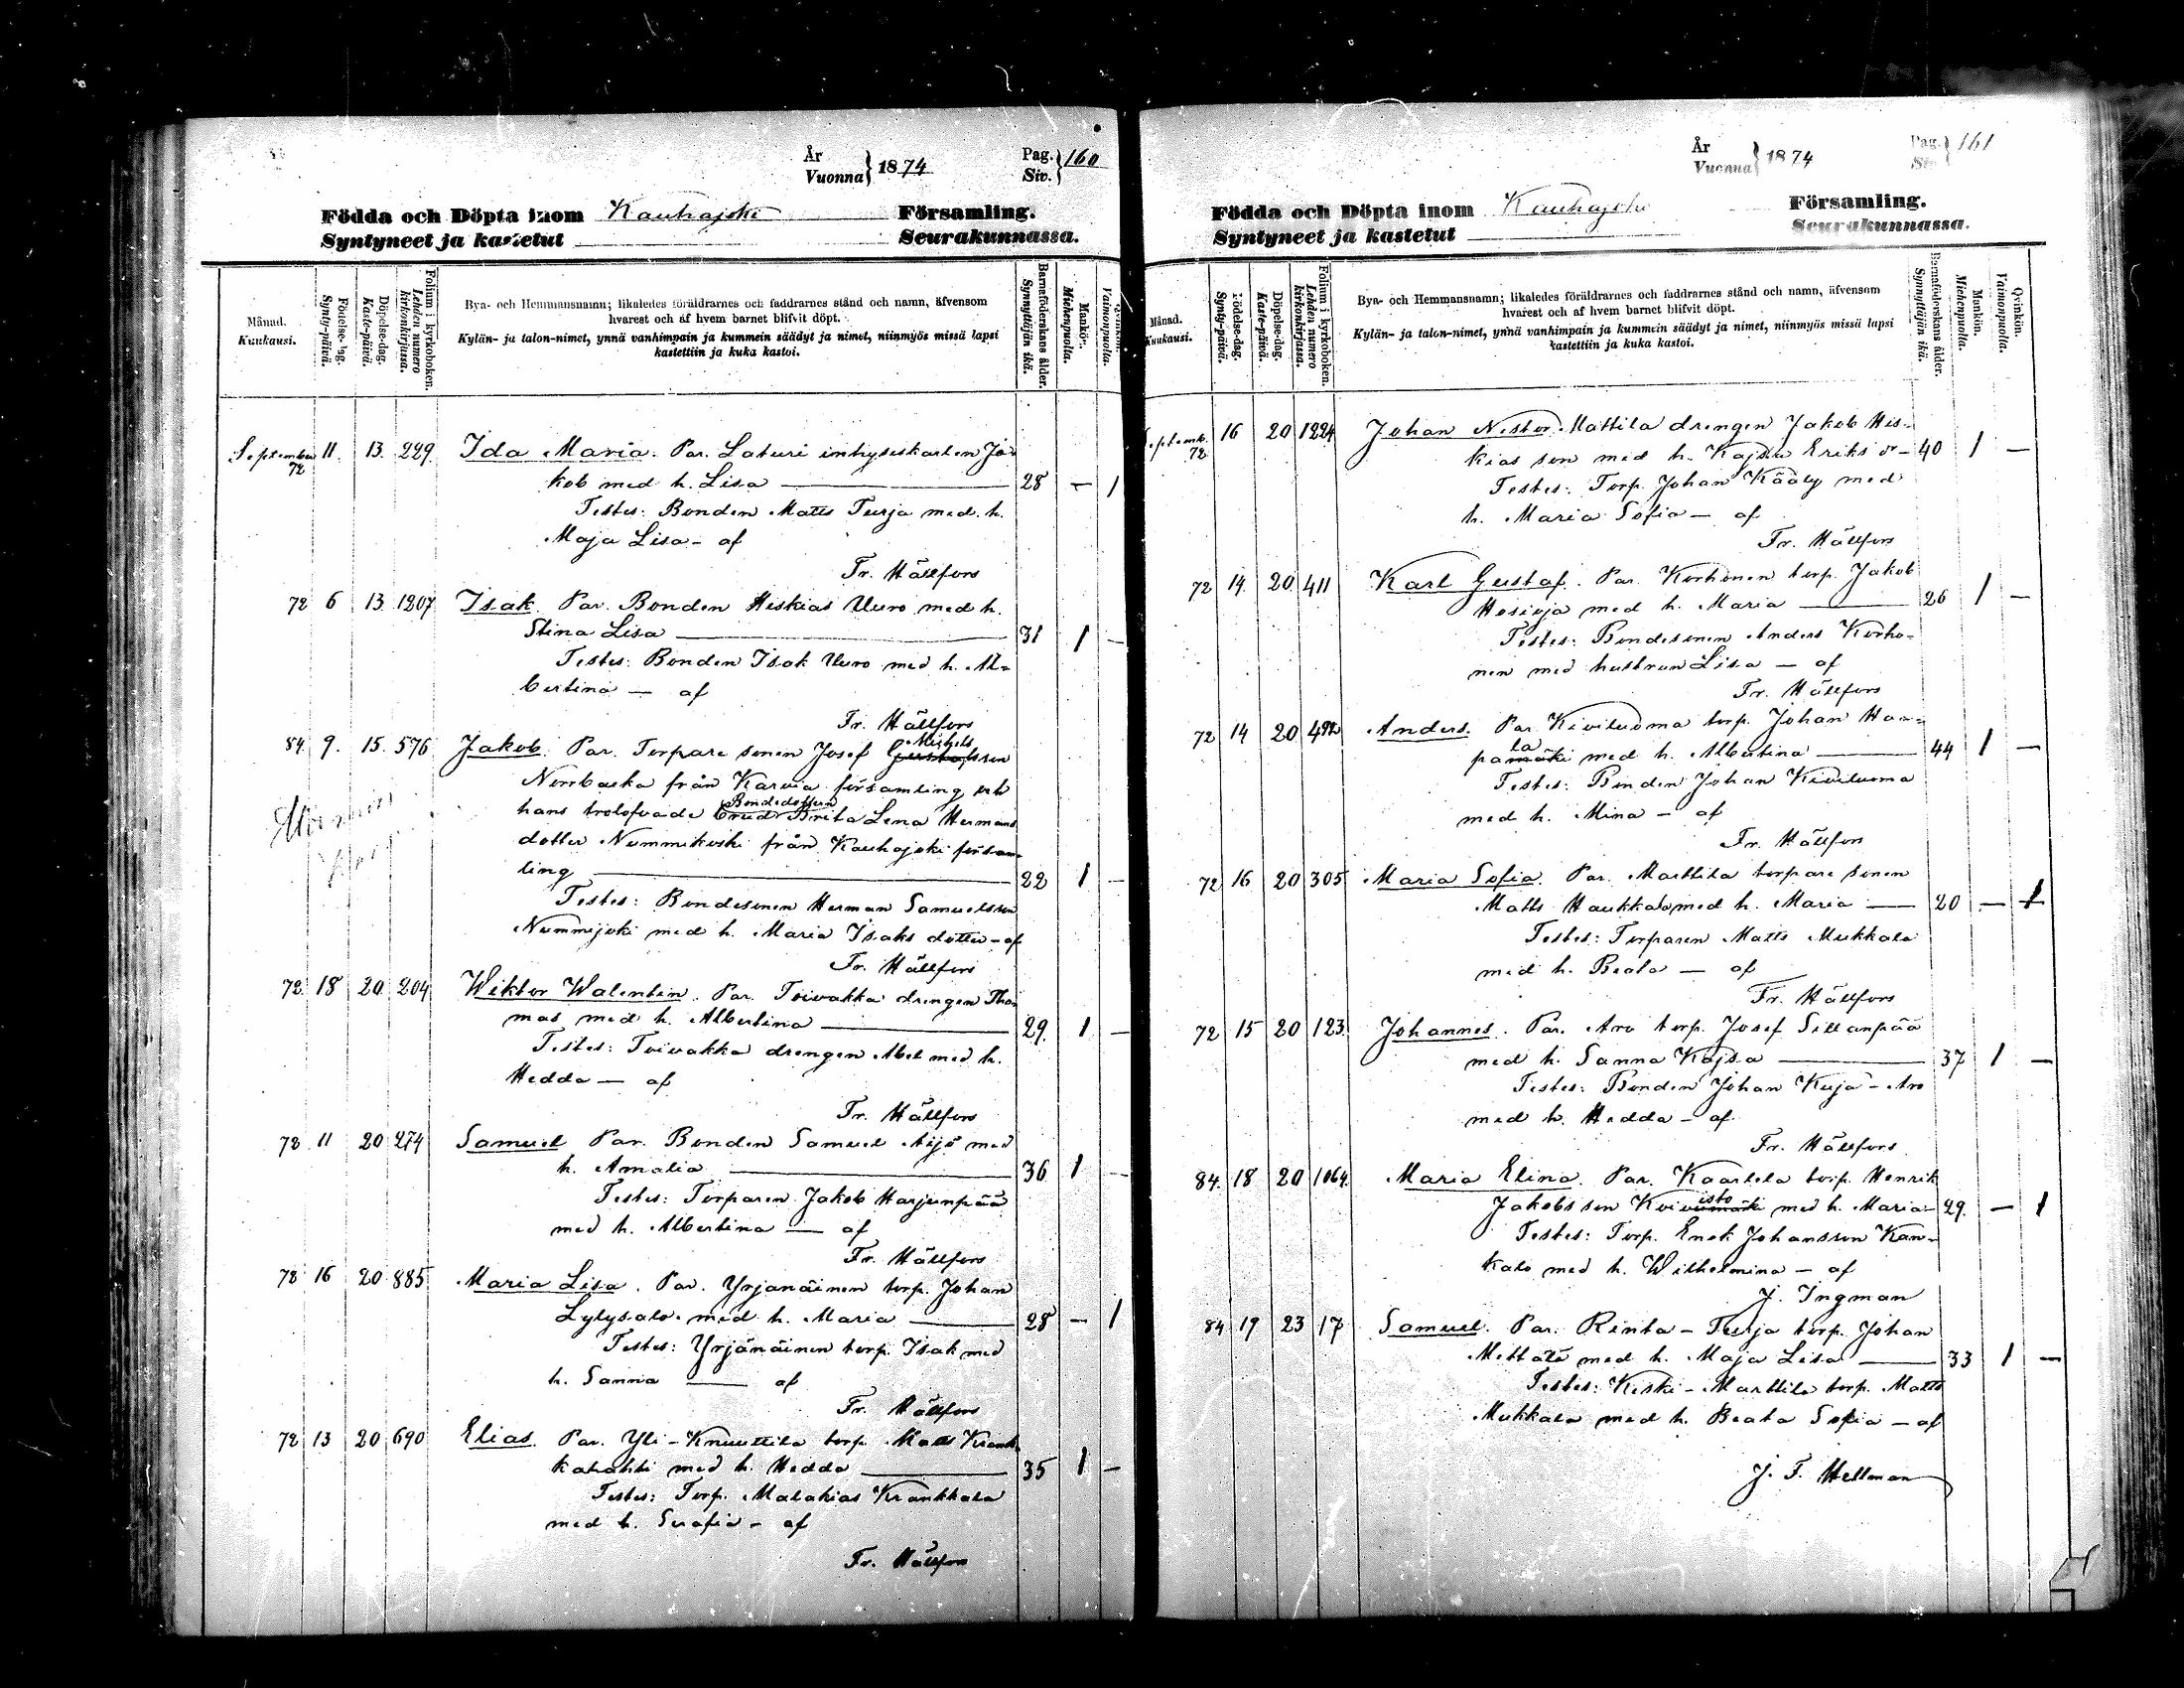 År
Vuonna } 1874 Pag.
Siv. } 160
Födda och Döpta inom Kauhajoki Församling.
Syntyneet ja kastetut Seurakunnassa.
Månad.
Kuukausi.
Födelse-dag.
Synty-päivä.
Döpelse-dag.
Kaste-päivä.
Folium i kyrkoboken.
Lehden numero
kirkonkirjassa.
Bya- och Hemmansnamn; likaledes föräldrarnes och faddrarnes stånd och namn, äfvensom
hvarest och af hvem barnet blifvit döpt.
Kylän- ja talon-nimet, ynnä vanhimpain ja kummein säädyt ja nimet, niinmyös missä lapsi
kastettiin ja kuka kastoi.
Barnaföderskans ålder.
Synnyttäjän ikä.
Mankön.
Miehenpuolta.
Qvinkön.
Vaimonpuolta.
September 11. 13. 229. Ida Maria. Par. Laturi inhyseskarlen Ja-
72 kob med h. Lisa — 28 — 1
Testes: Bonden Matts Turja med h.
Maja Lisa - af
Fr. Hällfors
72 6 13. 1207 Isak. Par. Bonden Heskias Uuro med h.
Stina Lisa — 31 1 —
Testes: Bonden Isak Uuro med h. Al-
bertina — af
Fr. Hällfors
84. 9. 15. 576 Jakob. Par. Torpare sonen Josef Mickels Gustafsson
Norrbacka från Karvia församling och
hans trolofvade Bondedottern Brita Lena Hermans
dotter Nummikoski från Kauhajoki försam-
ling — 22 1 —
Testes: Bondesonen Herman Samuelsson
Nummijoki med h. Maria Isaks dotter - af
Fr. Hällfors
72. 18 20 204 Wiktor Walentin. Par. Toivakka drengen Tho-
mas med h. Albertina — 29. 1 —
Testes: Toivakka drengen Abel med h.
Hedda — af
Fr. Hällfors
72. 11 20 274 Samuel Par. Bonden Samuel Äijö med
h. Amalia — 36 1 —
Testes: Torparen Jakob Harjunpää
med h. Albertina — af
Fr. Hällfors
72 16 20 885 Maria Lisa. Par. Yrjanäinen torp. Johan
Lylysalo med h. Maria — 28 — 1
Testes: Yrjänäinen torp. Isak med
h. Sanna — af
Fr. Hällfors
72 13 20 690 Elias. Par. Yli-Knuuttila torp. Matts Krank-
kalahti med h. Hedda — 35 1 —
Testes: Torp. Malakias Krankkala
med h. Serafia - af
Fr. Hällfors
År
Vuonna } 1874 Pag.
Siv. } 161
Födda och Döpta inom Kauhajoki Församling.
Syntyneet ja kastetut Seurakunnassa.
Månad.
Kuukausi.
Födelse-dag.
Synty-päivä.
Döpelse-dag.
Kaste-päivä.
Folium i kyrkoboken.
Lehden numero
kirkonkirjassa.
Bya- och Hemmansnamn; likaledes föräldrarnes och faddrarnes stånd och namn, äfvensom
hvarest och af hvem barnet blifvit döpt.
Kylän- ja talon-nimet, ynnä vanhimpain ja kummein säädyt ja nimet, niinmyös missä lapsi
kastettiin ja kuka kastoi.
Barnaföderskans ålder.
Synnyttäjän ikä.
Mankön.
Miehenpuolta.
Qvinkön.
Vaimonpuolta.
Septemb. 16 20 1224 Johan Nestor. Mattila drengen Jakob His-
72 kias son med h. Kajsa Eriks d - 40 1 —
Testes: Torp. Johan Kääly med
h. Maria Sofia — af
Fr. Hällfors
72 14. 20. 411 Karl Gustaf. Par. Korhonen torp. Jakob
Hosioja med h. Maria — 26 1 —
Testes: Bondesonen Anders Korho-
nen med hustrun Lisa — af
Fr. Hällfors
72 14 20 492 Anders. Par. Kiviluoma torp. Johan Haa-
pamäki la med h. Albertina — 44 1 —
Testes: Bonden Johan Kiviluoma
med h. Mina - af
Fr. Hällfors
72 16 20 305 Maria Sofia. Par. Marttila torpare sonen
Matts Haukkala med h. Maria — 20 — 1
Testes: Torparen Matts Mukkala
med h. Beata — af
Fr. Hällfors
72 15 20 123. Johannes. Par. Aro torp. Josef Sillanpää
med h. Sanna Kajsa — 37 1 —
Testes: Bonden Johan Kuja-Aro
med h. Hedda - af
Fr. Hällfors
84. 18 20 1064. Maria Elina. Par. Kaarlela torp. Henrik
Jakobsson Koivumäki isto med h. Maria - 29. — 1
Testes: Torp. Enok Johansson Kan-
kalo med h. Wilhelmina - af
J. Ingman
84 19 23 17 Samuel. Par. Rinta-Turja torp. Johan
Mettälä med h. Maja Lisa — 33 1 —
Testes: Keski-Marttila torp. Matts
Mukkala med h. Beata Sofia — af
J. F. Hellman